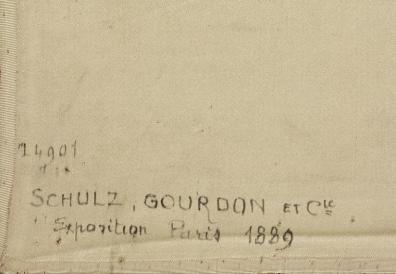 14901
SCHULZ, GOURDON ET Cie
Exposition Paris 1889